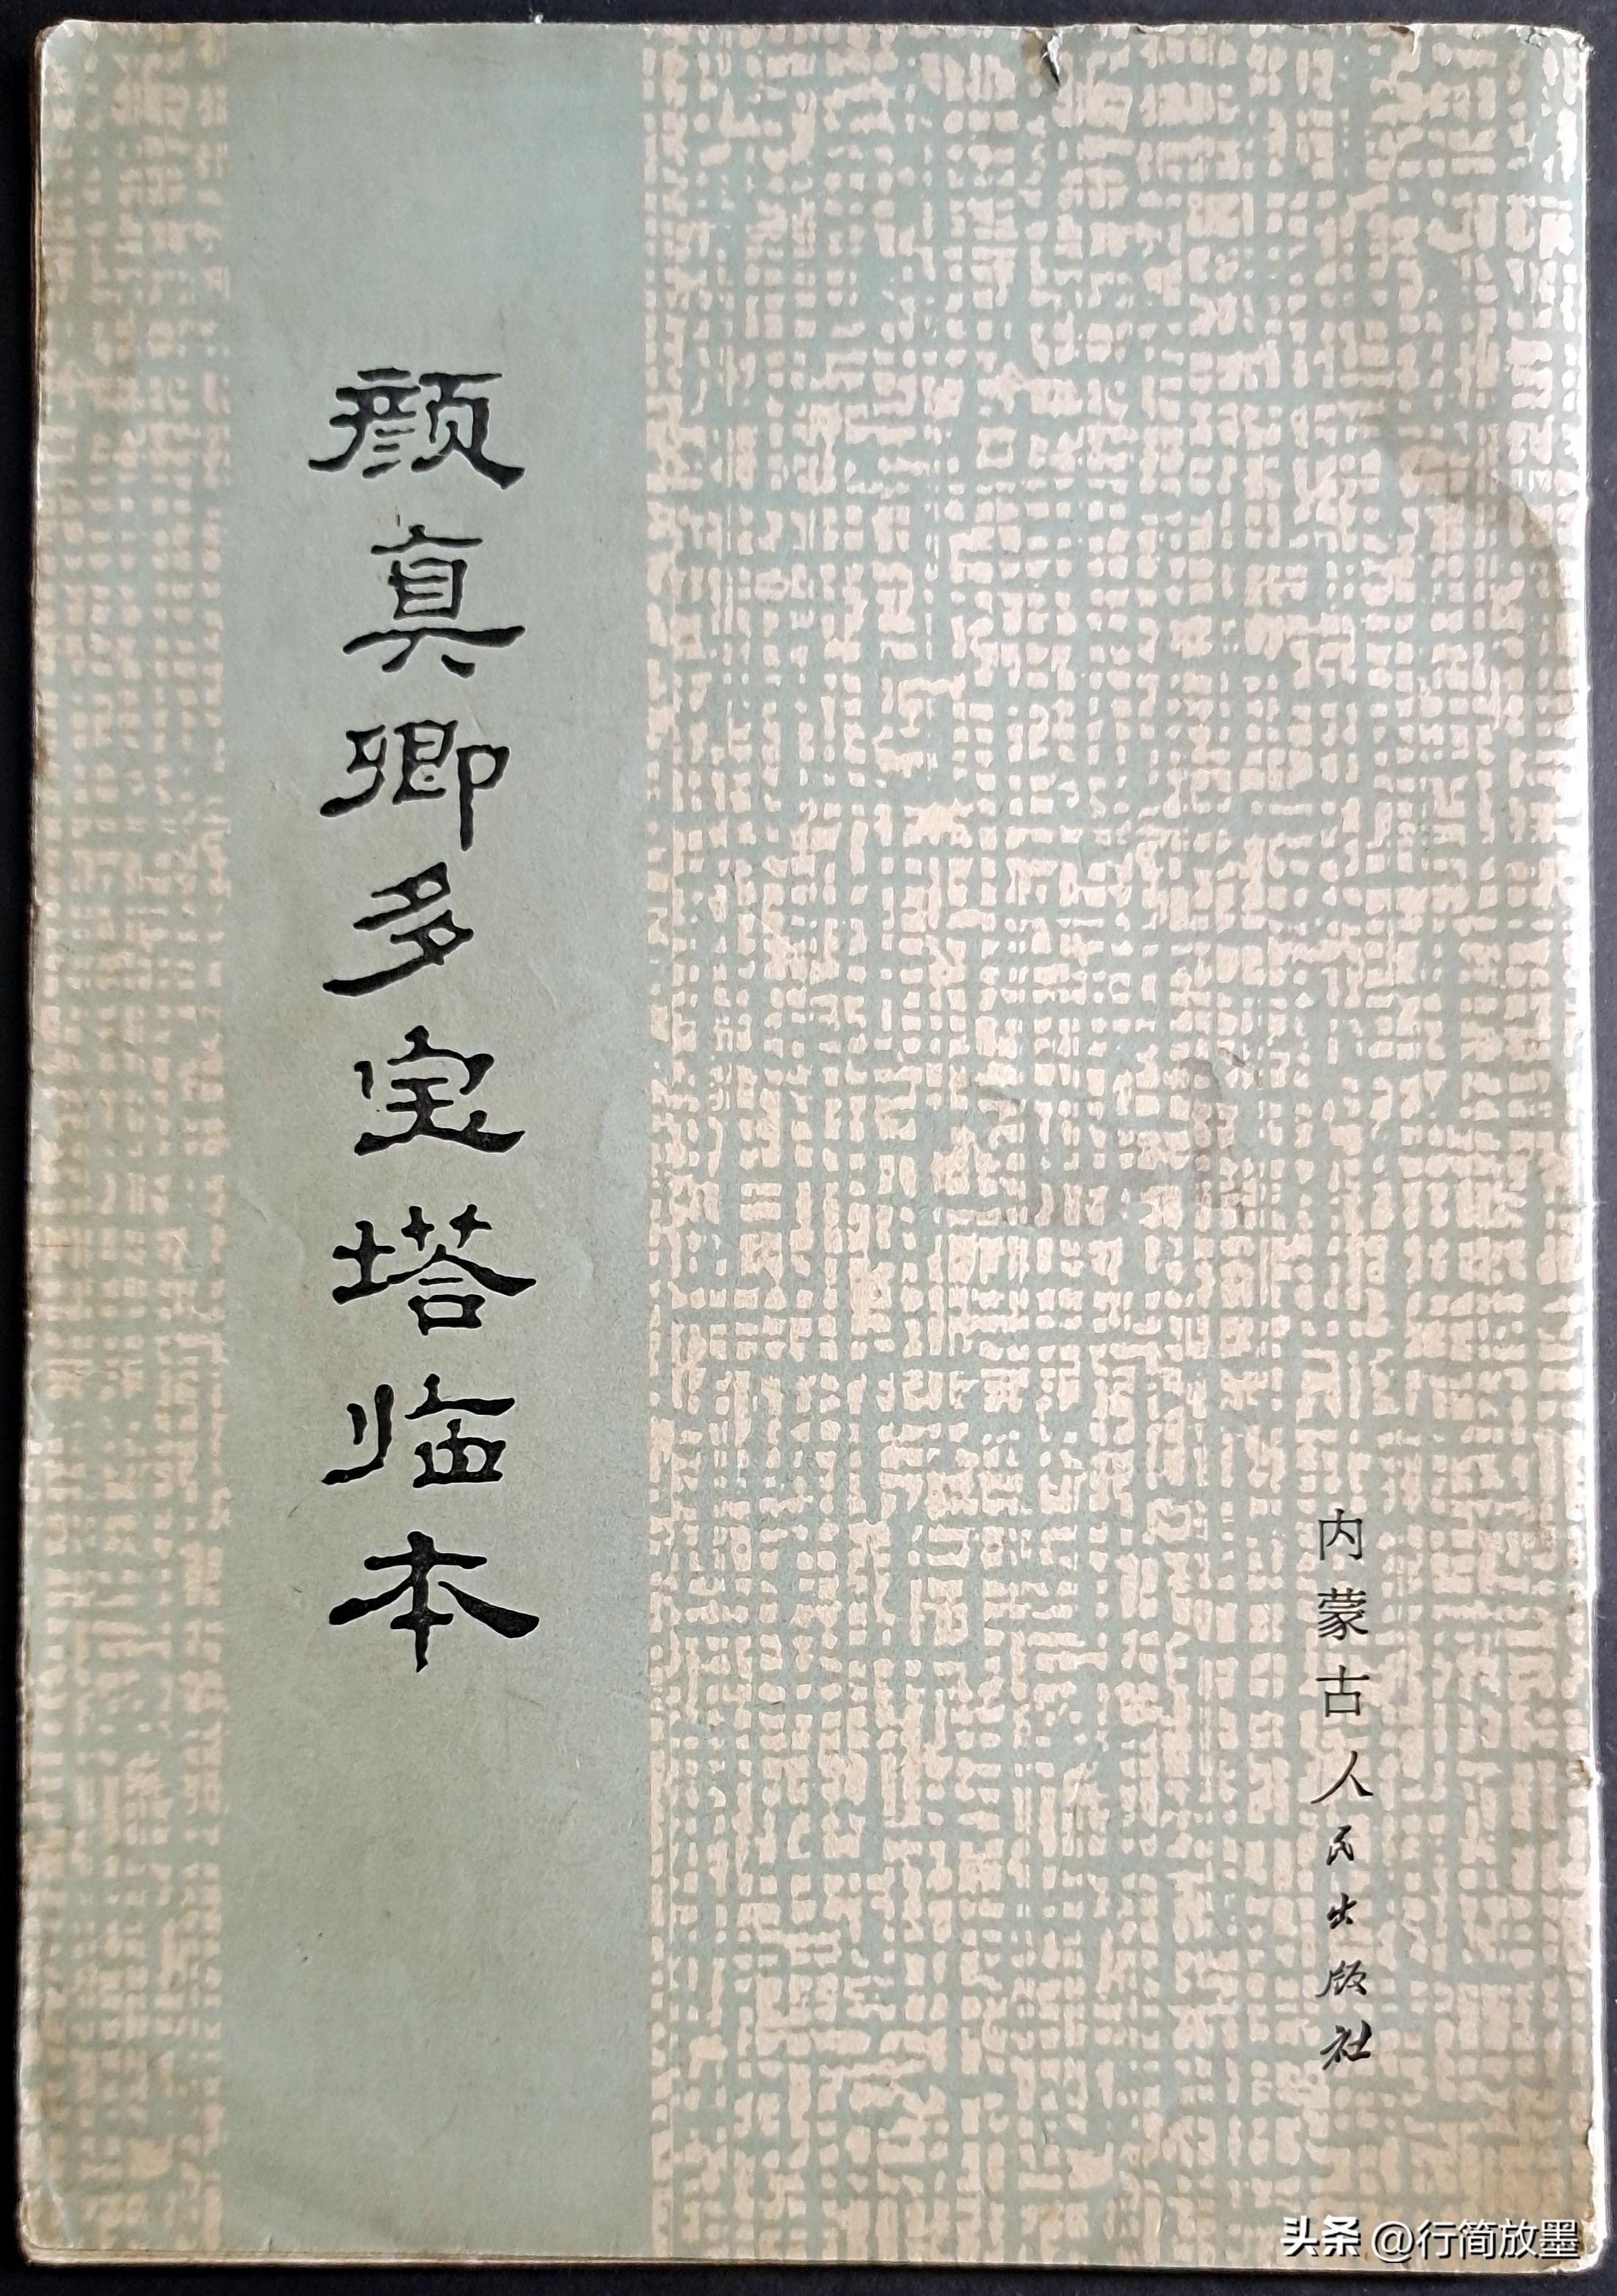 颜真卿多宝塔临本
内蒙古人民出版社
头条 @行简放墨